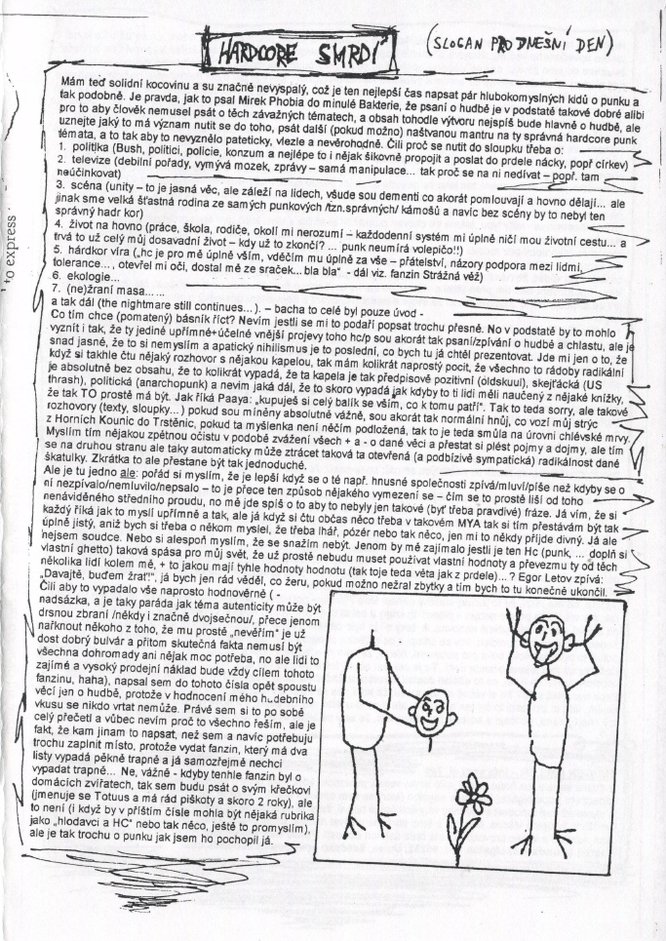 HARDCORE SMRDÍ
(SLOGAN PRO DNEŠNÍ DEN)
Mám teď solidní kocovinu a su značně nevyspalý, což je ten nejlepší čas napsat pár hlubokomyslných kidů o punku a
tak podobně. Je pravda, jak to psal Mirek Phobia do minulé Bakterie, že psaní o hudbě je v podstatě takové dobré alibi
pro to aby člověk nemusel psát o těch závažných tématech, a obsah tohodle výtvoru nejspíš bude hlavně o hudbě, ale
uznejte jaký to má význam nutit se do toho, psát další (pokud možno) naštvanou mantru na ty správná hardcore punk
témata, a to tak aby to nevyznělo pateticky, vlezle a nevěrohodně. Čili proč se nutit do sloupku třeba o:
1. politika (Bush, politici, policie, konzum a nejlépe to i nějak šikovně propojit a poslat do prdele nácky, popř církev)
2. televize (debilní pořady, vymývá mozek, zprávy – samá manipulace... tak proč se na ni nedívat – popř. tam
neúčinkovat)
3. scéna (unity – to je jasná věc, ale záleží na lidech, všude sou dementi co akorát pomlouvají a hovno dělají... ale
jinak sme velká šťastná rodina ze samých punkových /tzn.správných/ kámošů a navíc bez scény by to nebyl ten
správný hadr kor)
4. život na hovno (práce, škola, rodiče, okolí mi nerozumí – každodenní systém mi úplně ničí mou životní cestu... a
trvá to už celý můj dosavadní život – kdy už to zkončí? ... punk neumírá volepičo!!)
5. hárdkor víra („hc je pro mě úplně vším, vděčím mu úplně za vše – přátelství, názory podpora mezi lidmi,
tolerance..., otevřel mi oči, dostal mě ze sraček...bla bla“ - dál viz. fanzin Strážná věž)
6. ekologie...
7. (ne)žraní masa......
a tak dál (the nightmare still continues...). – bacha to celé byl pouze úvod -
Co tím chce (pomatený) básník říct? Nevím jestli se mi to podaří popsat trochu přesně. No v podstatě by to mohlo
vyznít i tak, že ty jediné upřímné+účelné vnější projevy toho hc/p sou akorát tak psaní/zpívání o hudbě a chlastu, ale je
snad jasné, že to si nemyslím a apatický nihilismus je to poslední, co bych tu já chtěl prezentovat. Jde mi jen o to, že
když si takhle čtu nějaký rozhovor s nějakou kapelou, tak mám kolikrát naprostý pocit, že všechno to rádoby radikální
je absolutně bez obsahu, že to kolikrát vypadá, že ta kapela je tak předpisově pozitivní (oldskuul), skejťácká (US
thrash), politická (anarchopunk) a nevim jaká dál, že to skoro vypadá jak kdyby to ti lidi měli naučený z nějaké knížky,
že tak TO prostě má být. Jak říká Paaya: „kupuješ si celý balík se vším, co k tomu patří“. Tak to teda sorry, ale takové
rozhovory (texty, sloupky...) pokud sou míněny absolutně vážně, sou akorát tak normální hnůj, co vozí můj strýc
z Horních Kounic do Trstěnic, pokud ta myšlenka není něčím podložená, tak to je teda smůla na úrovni chlévské mrvy.
Myslím tím nějakou zpětnou očistu v podobě zvážení všech + a - o dané věci a přestat si plést pojmy a dojmy, ale tím
se na druhou stranu ale taky automaticky může ztrácet taková ta otevřená (a podbízivě sympatická) radikálnost dané
škatulky. Zkrátka to ale přestane být tak jednoduché.
Ale je tu jedno ale: pořád si myslím, že je lepší když se o té např. hnusné společnosti zpívá/mluví/píše než kdyby se o
ní nezpívalo/nemluvilo/nepsalo – to je přece ten způsob nějakého vymezení se – čím se to prostě liší od toho
nenáviděného středního proudu, no mě jde spíš o to aby to nebyly jen takové (byť třeba pravdivé) fráze. Já vím, že si
každý říká jak to myslí upřímně a tak, ale já když si čtu občas něco třeba v takovém MYA tak si tím přestávám být tak
úplně jistý, aniž bych si třeba o někom myslel, že třeba lhář, pózér nebo tak něco, jen mi to někdy přijde divný. Já ale
hejsem soudce. Nebo si alespoň myslím, že se snažím nebýt. Jenom by mě zajímalo jestli je ten Hc (punk, ... doplň si
vlastní ghetto) taková spása pro můj svět, že už prostě nebudu muset používat vlastní hodnoty a převezmu ty od těch
několika lidí kolem mě, + to jakou mají tyhle hodnoty hodnotu (tak toje teda věta jak z prdele)...? Egor Letov zpívá:
„Davajtě, buďem žrať!“, já bych jen rád věděl, co žeru, pokud možno nežral zbytky a tím bych to tu konečně ukončil.
Čili aby to vypadalo vše naprosto hodnověrně ( -
nadsázka, a je taky paráda jak téma autenticity může být
drsnou zbraní /někdy i značně dvojsečnou/, přece jenom
nařknout někoho z toho, že mu prostě „nevěřím“ je už
dost dobrý bulvár a přitom skutečná fakta nemusí být
všechna dohromady ani nějak moc potřeba, no ale lidi to
zajímé a vysoký prodejní náklad bude vždy cílem tohoto
fanzinu, haha), napsal sem do tohoto čísla opět spoustu
věcí jen o hudbě, protože v hodnocení mého hudebního
vkusu se nikdo vrtat nemůže. Právě sem si to po sobě
celý přečetl a vůbec nevím proč to všechno řeším, ale je
fakt, že kam jinam to napsat, než sem a navíc potřebuju
trochu zaplnit místo, protože vydat fanzin, který má dva
listy vypadá pěkně trapně a já samozřejmě nechci
vypadat trapně... Ne, vážně - kdyby tenhle fanzin byl o
domácích zvířatech, tak sem budu psát o svým křečkovi
(jmenuje se Totuus a má rád piškoty a skoro 2 roky), ale
to není (i když by v příštím čísle mohla být nějaká rubrika
jako „hlodavci a HC“ nebo tak něco, ještě to promyslím),
ale je tak trochu o punku jak jsem ho pochopil já.
to express